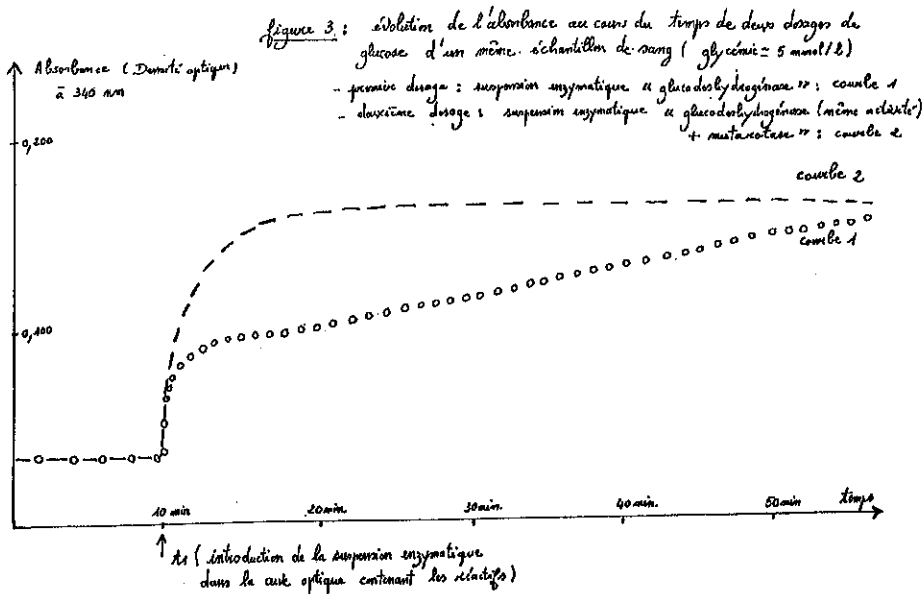 figure 3 : évolution de l'absorbance au cours du temps de deux dosages de
glucose d'un même échantillon de sang ( glycémie ≃ 5 mmol/l)
- premier dosage : suspension enzymatique « glucodeshydrogénase » : courbe 1
- deuxième dosage : suspension enzymatique « glucodeshydrogénase (même activité)
+ mutarotase » : courbe 2
Absorbance (Densité optique)
à 340 nm
0,200
courbe 2
courbe 1
0,100
10 min
20 min.
30 min.
40 min.
50 min
temps
( introduction de la suspension enzymatique
dans la cuve optique contenant les réactifs)